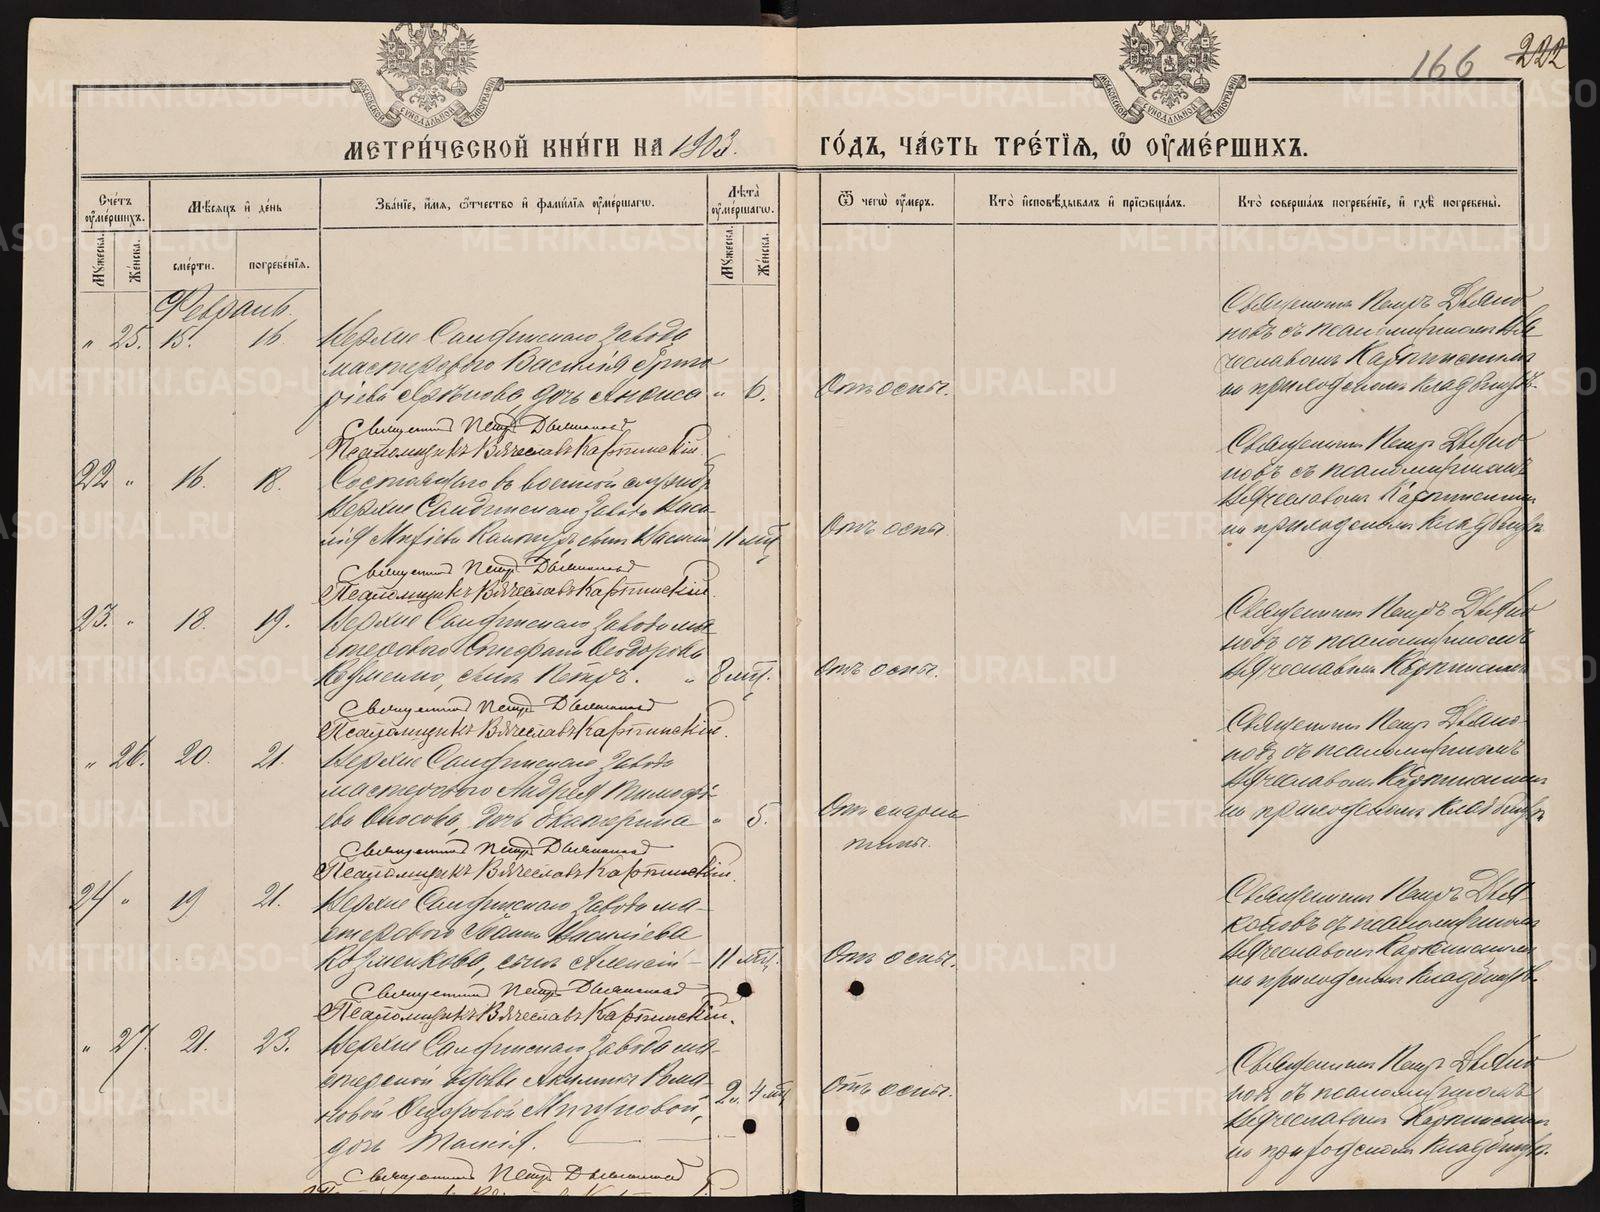 166 222
МЕТРИ́ЧЕСКОЙ КНИ́ГИ НА 1903.
ГО́ДЪ, ЧА́СТЬ ТРЕ́ТІѦ, Ѡ ОУ҆МЕ́РШИХЪ.
МОСКОВСКОЙ СѴНОДАЛЬНОЙ ТИПОГРАФІИ
МОСКОВСКОЙ СѴНОДАЛЬНОЙ ТИПОГРАФІИ
Сче́тъ оу҆ме́ршихъ.
Мꙋжеска.
Же́нска.
Мѣ́сяцъ и҆ де́нь
сме́рти.
погребе́нїѧ.
Зва́нїе, и҆́мѧ, ѻ҆́тчество и҆ фами́лїѧ оу҆ме́ршагѡ.
Лѣта̀ оу҆ме́ршагѡ.
Мꙋжеска.
Же́нска.
Ѿ чегѡ̀ оу҆́меръ.
Кто̀ и҆сповѣ́дывалъ и҆ прїѡбща́лъ.
Кто̀ соверша́лъ погребе́нїе, и҆ гдѣ̀ погребены̀.
Февраль.
" 25. 15. 16.
Верхне Салдинскаго завода
мастероваго Василія Григо
рія дочь Анѳиса " 6.
Отъ оспы.
Священникъ Петръ Дьяко
новъ съ псаломщикомъ Вя
чеславомъ Карпинскимъ
на приходскомъ кладбищѣ.
Священникъ Петръ Дьяконовъ
Псаломщикъ Вячеславъ Карпинскій.
22 " 16. 18.
Состоящаго въ военной службѣ
Верхне Салдинскаго завода Васи-
лія сынъ Василій 11 мѣс.
Отъ оспы
Священникъ Петръ Дьяко
новъ съ псаломщикомъ
Вячеславомъ Карпинскимъ
на приходскомъ кладбищѣ
Священникъ Петръ Дьяконовъ
Псаломщикъ Вячеславъ Карпинскій.
23. " 18. 19.
Верхне Салдинскаго завода ма
стероваго Стефана Ѳеодорова
сынъ Петръ. " 8 мѣс.
Отъ оспы.
Священникъ Петръ Дьяко
новъ съ псаломщикомъ
Вячеславомъ Карпинскимъ
Священникъ Петръ Дьяконовъ
Псаломщикъ Вячеславъ Карпинскій.
" 26. 20. 21.
Верхне Салдинскаго завода
мастероваго Андрея Тимоѳѣ-
ева дочь Екатерина " 5.
Отъ скарла
тины.
Священникъ Петръ Дьяко-
новъ съ псаломщикомъ
Вячеславомъ Карпинскимъ
на приходскомъ кладбищѣ
Священникъ Петръ Дьяконовъ
Псаломщикъ Вячеславъ Карпинскій.
24 " 19 21.
Верхне Салдинскаго завода ма-
стероваго Ивана Васильева
сынъ Алексій - 11 мѣс.
Отъ оспы.
Священникъ Петръ Дья-
коновъ съ псаломщикомъ
Вячеславомъ Карпинскимъ
на приходскомъ кладбищѣ.
Священникъ Петръ Дьяконовъ
Псаломщикъ Вячеславъ Карпинскій.
" 27. 21. 23.
Верхне Салдинскаго завода ма-
стерской вдовы Акилины Рома-
новой
дочь Таисія. 2 л. 4 мѣс
Отъ оспы.
Священникъ Петръ Дьяко
новъ съ псаломщикомъ
Вячеславомъ Карпинскимъ
на приходскомъ кладбищѣ.
Священникъ Петръ Дьяконовъ
METRIKI.GASO-URAL.RU